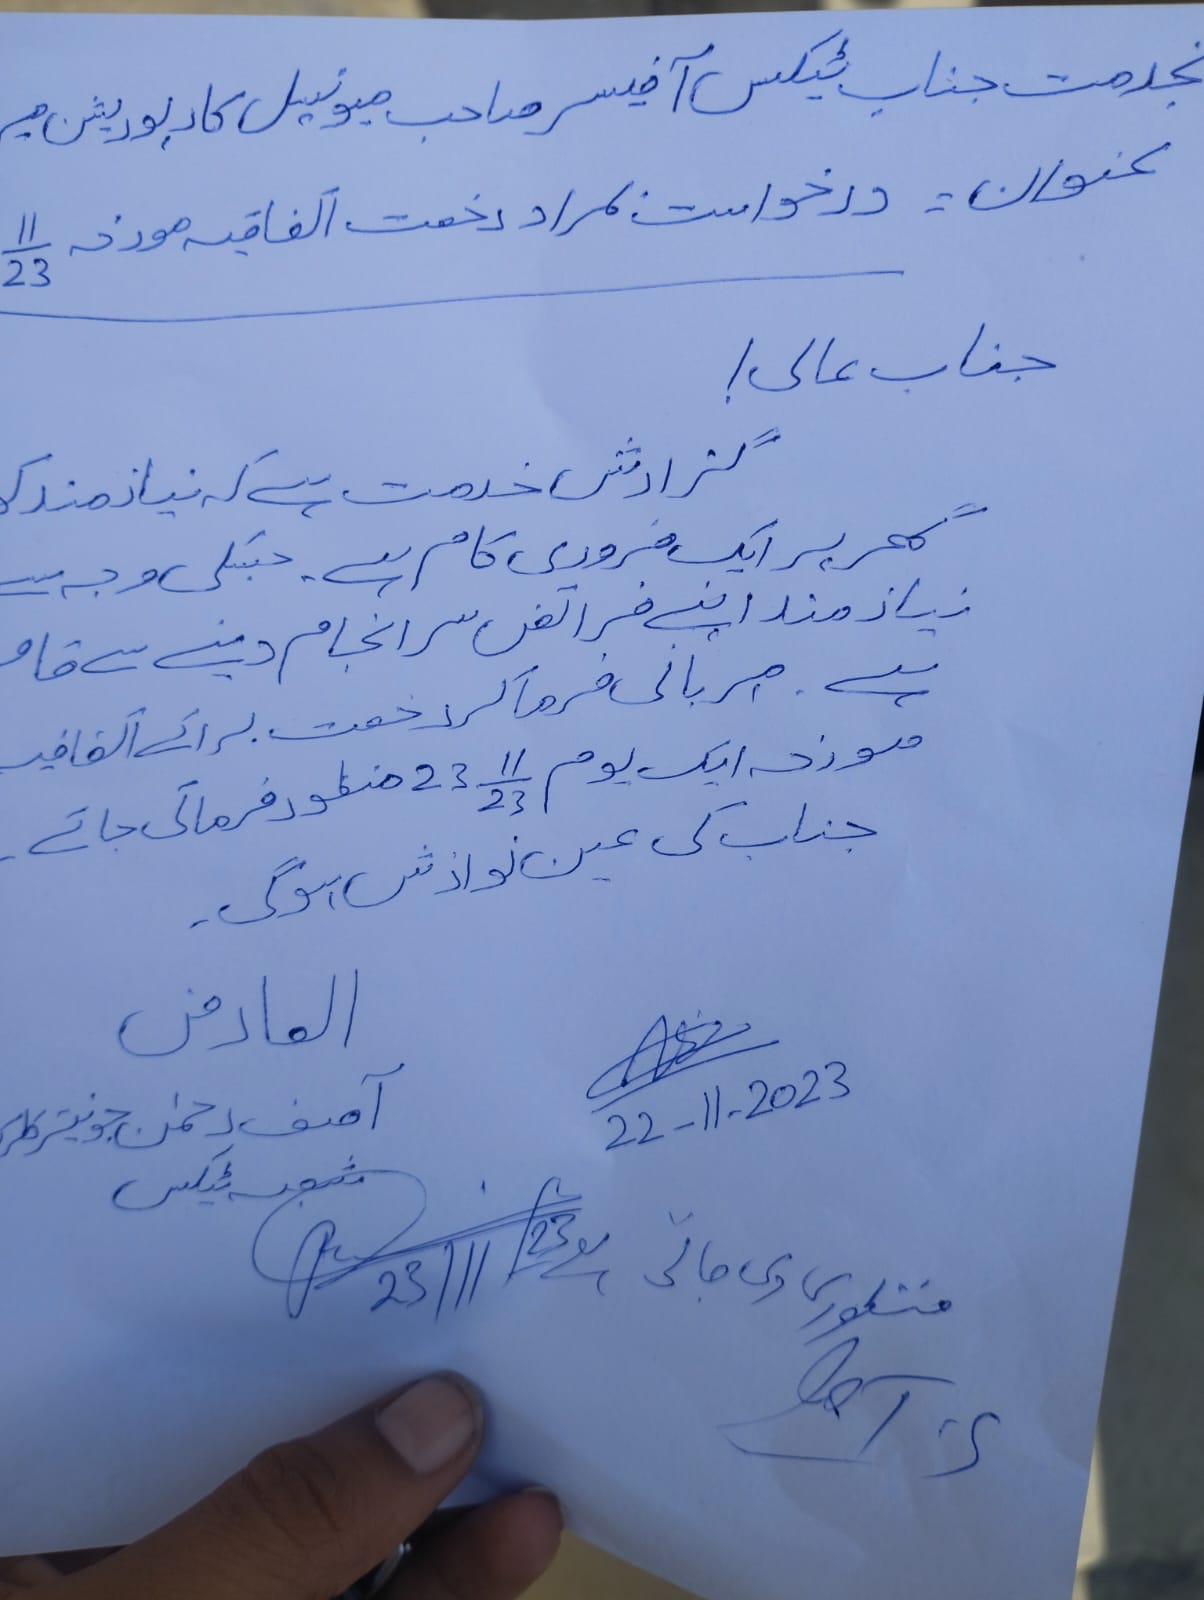 بخدمت جناب ٹیکس آفیسر صاحب میونسپل کارپوریشن
عنوان:۔ درخواست بمراد رخصت اتفاقیہ مورخہ 11/23
جناب عالی!
گزارش خدمت ہے کہ نیازمند کو
گھر پر ایک ضروری کام ہے۔ جسکی وجہ سے
نیازمند اپنے فرائض سرانجام دینے سے
ہے۔ مہربانی فرما کر رخصت برائے اتفاقیہ
مورخہ ایک یوم 23 11/23 منظور فرمائی جائے۔
جناب کی عین نوازش ہوگی۔
العارض
آصف رحمٰن جونیئر کلرک
شعبہ ٹیکس
22-11-2023
منظوری دی جاتی ہے
23/11/23